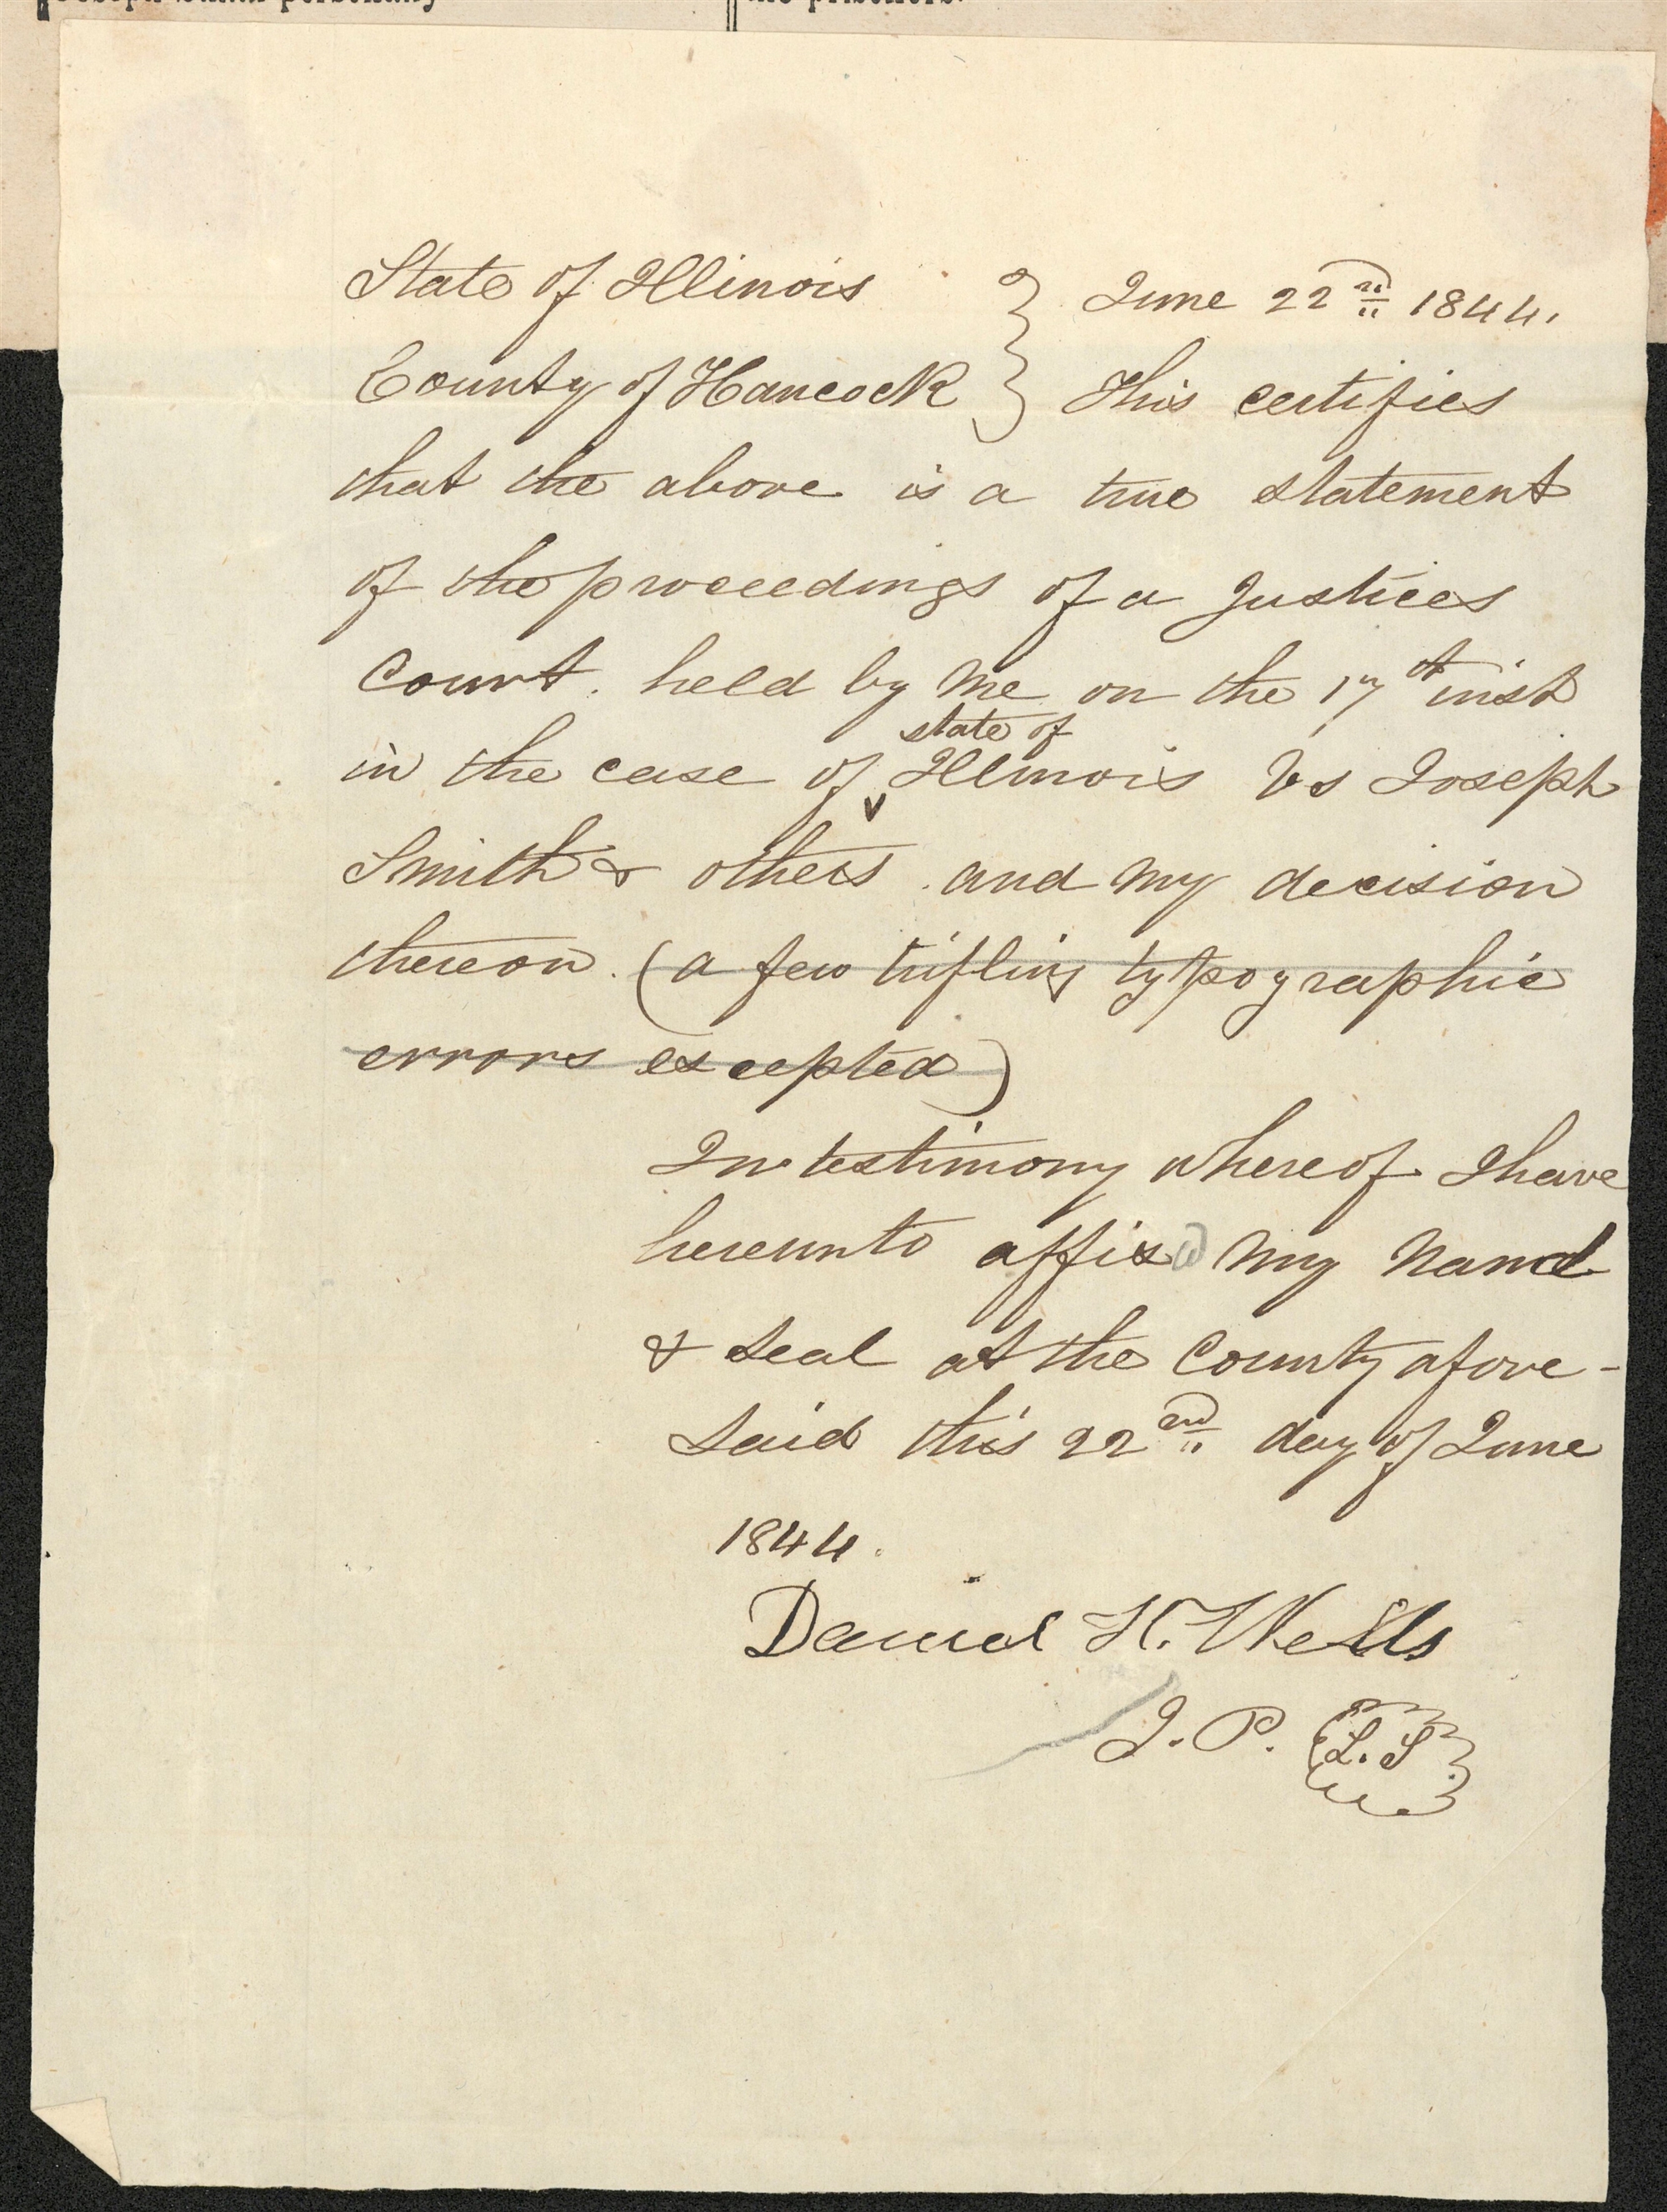 the prisoners.
State of Illinois } June 22nd 1844.
County of Hancock } This certifies
that the above is a true statement
of the proceedings of a Justices
Court. held by me on the 17th inst
state of
in the case of Illinois Vs Joseph
Smith & others. and my decision
thereon. (a few trifling typographic
errors excepted)
In testimony whereof I have
hereunto affixed my name
& seal at the County afore-
said this 22nd day of June
1844.
Daniel H. Wells
J. P. L. S.